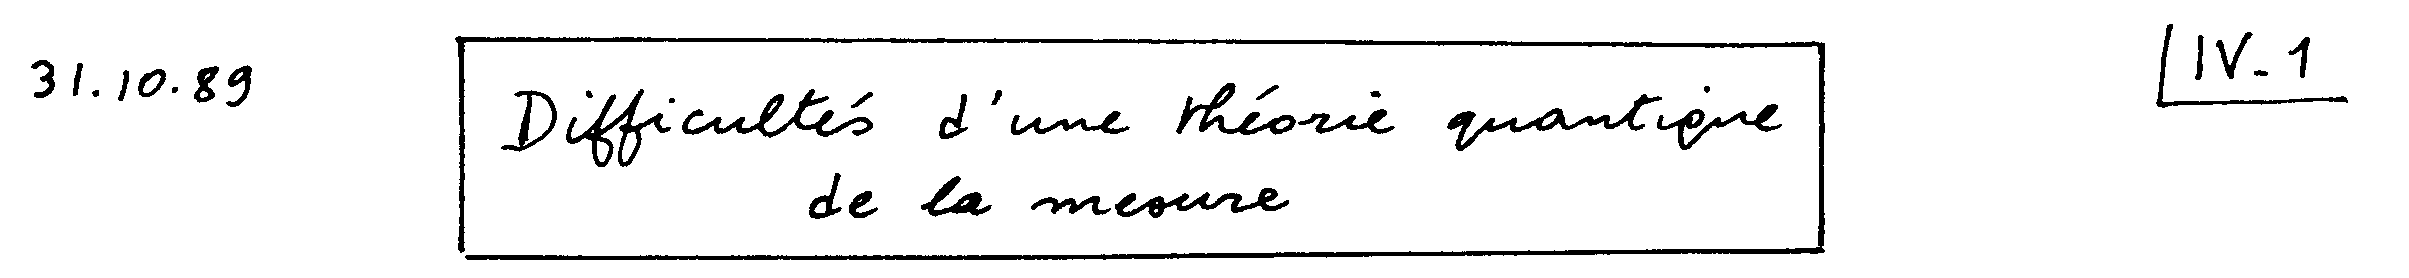 31.10.89
Difficultés d'une théorie quantique
de la mesure
IV-1